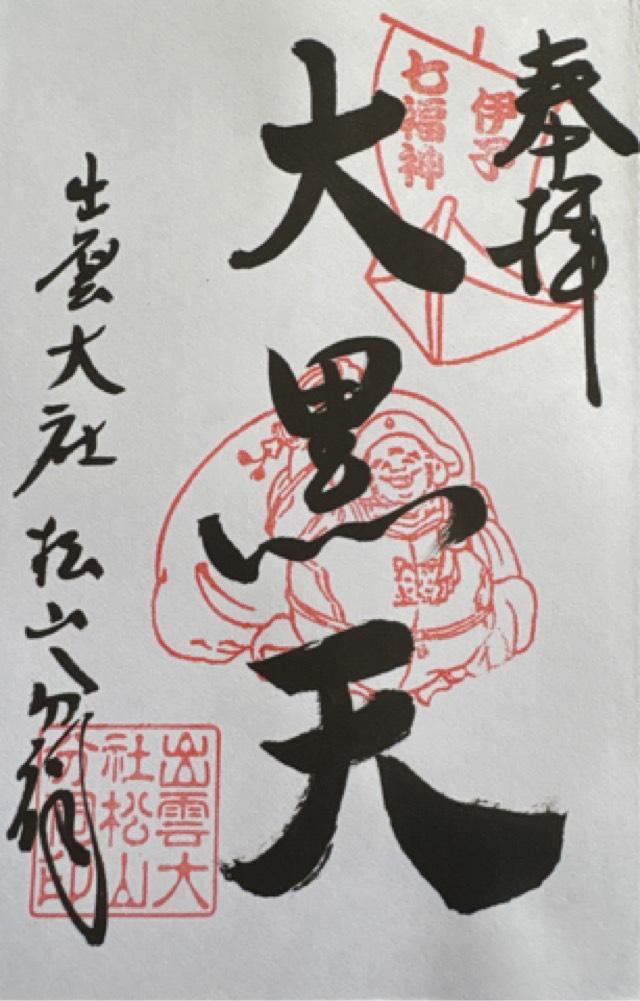 奉拝
伊予
七福神
大黒天
出雲大社松山分祠
出雲大
社松山
分祠印